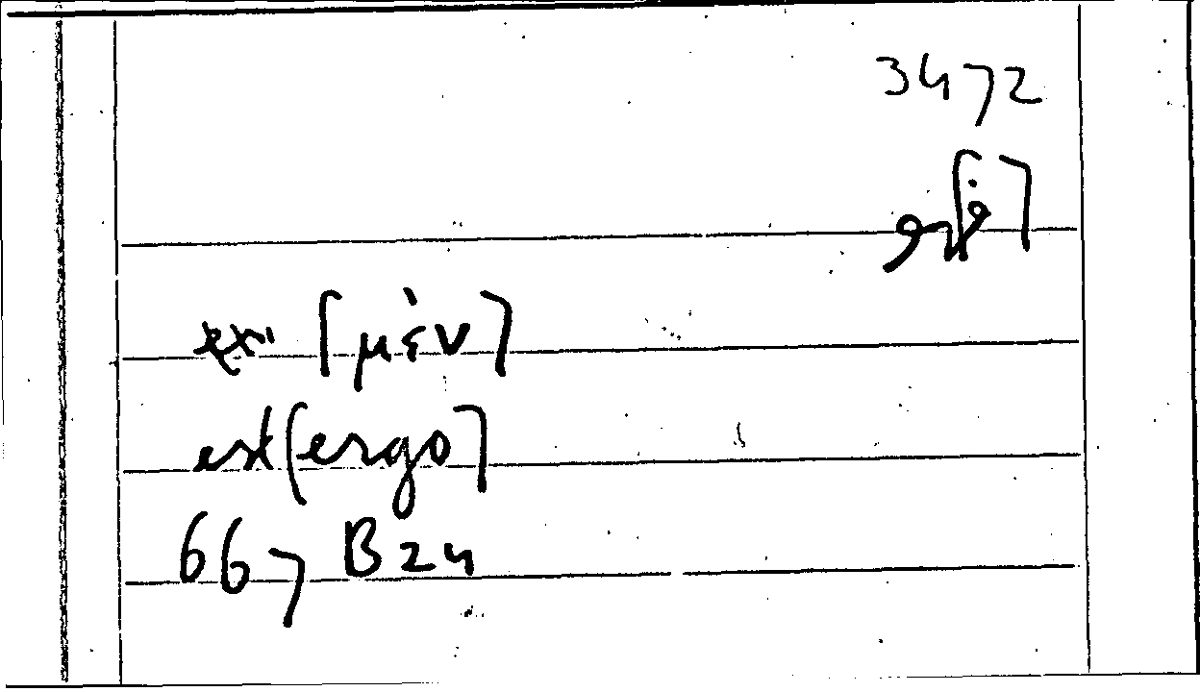 3472
[μὲν]
est [ergo]
667 B 24